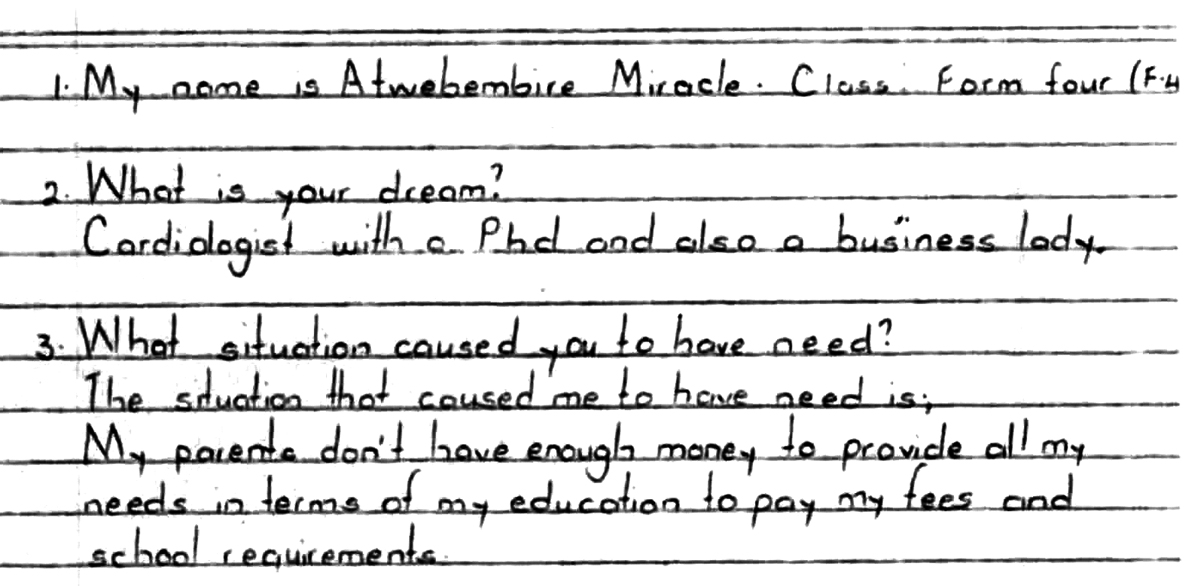 1. My name is Atwebembire Miracle. Class: Form four (F.4
2. What is your dream?
Cardiologist with a Phd and also a business lady.
3. What situation caused you to have need?
The situation that caused me to have need is;
My parents don't have enough money to provide all my
needs in terms of my education to pay my fees and
school requirements.